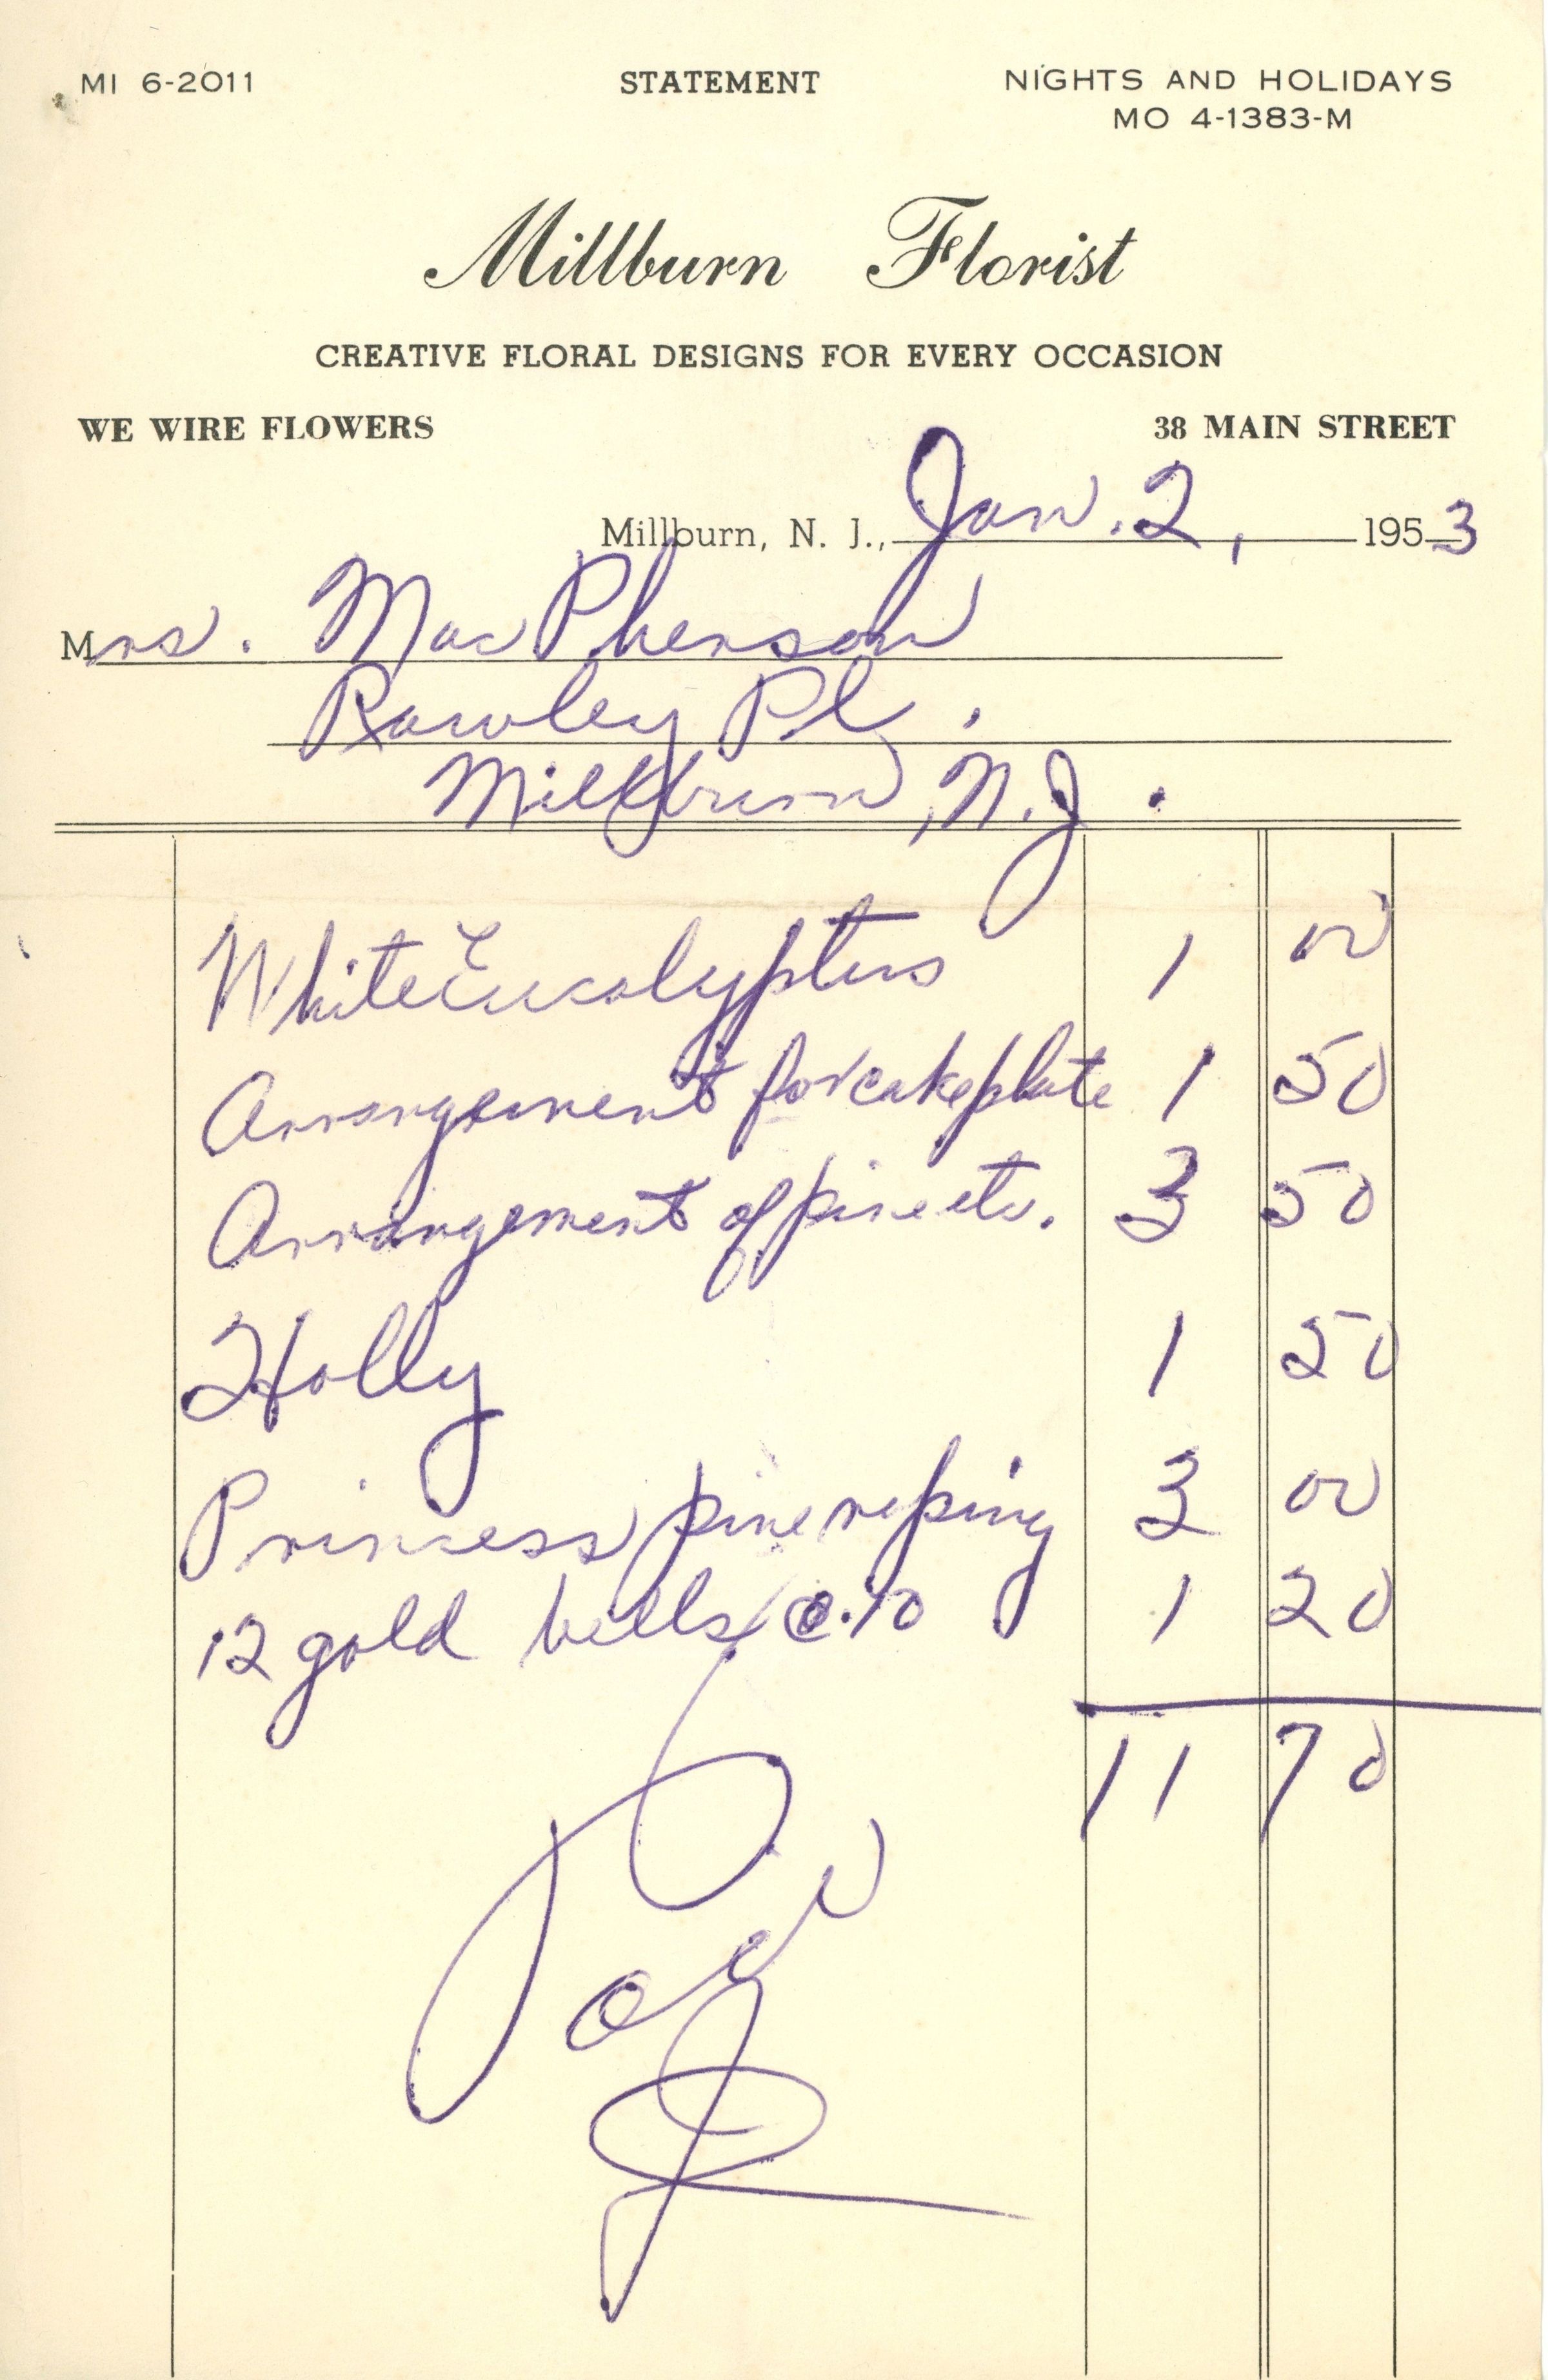 MI 6-2011 STATEMENT NIGHTS AND HOLIDAYS
MO 4-1383-M
Millburn Florist
CREATIVE FLORAL DESIGNS FOR EVERY OCCASION
WE WIRE FLOWERS 38 MAIN STREET
Millburn, N. J., Jan. 2, 1953
Mrs. MacPherson
Rawley Pl.
Millburn, N.J.
White Eucalyptus 1 00
Arrangement for cakeplate 1 50
Arrangement of pine etc. 3 50
Holly 1 50
Princess pine roping 3 00
12 gold bells @.10 1 20
11 70